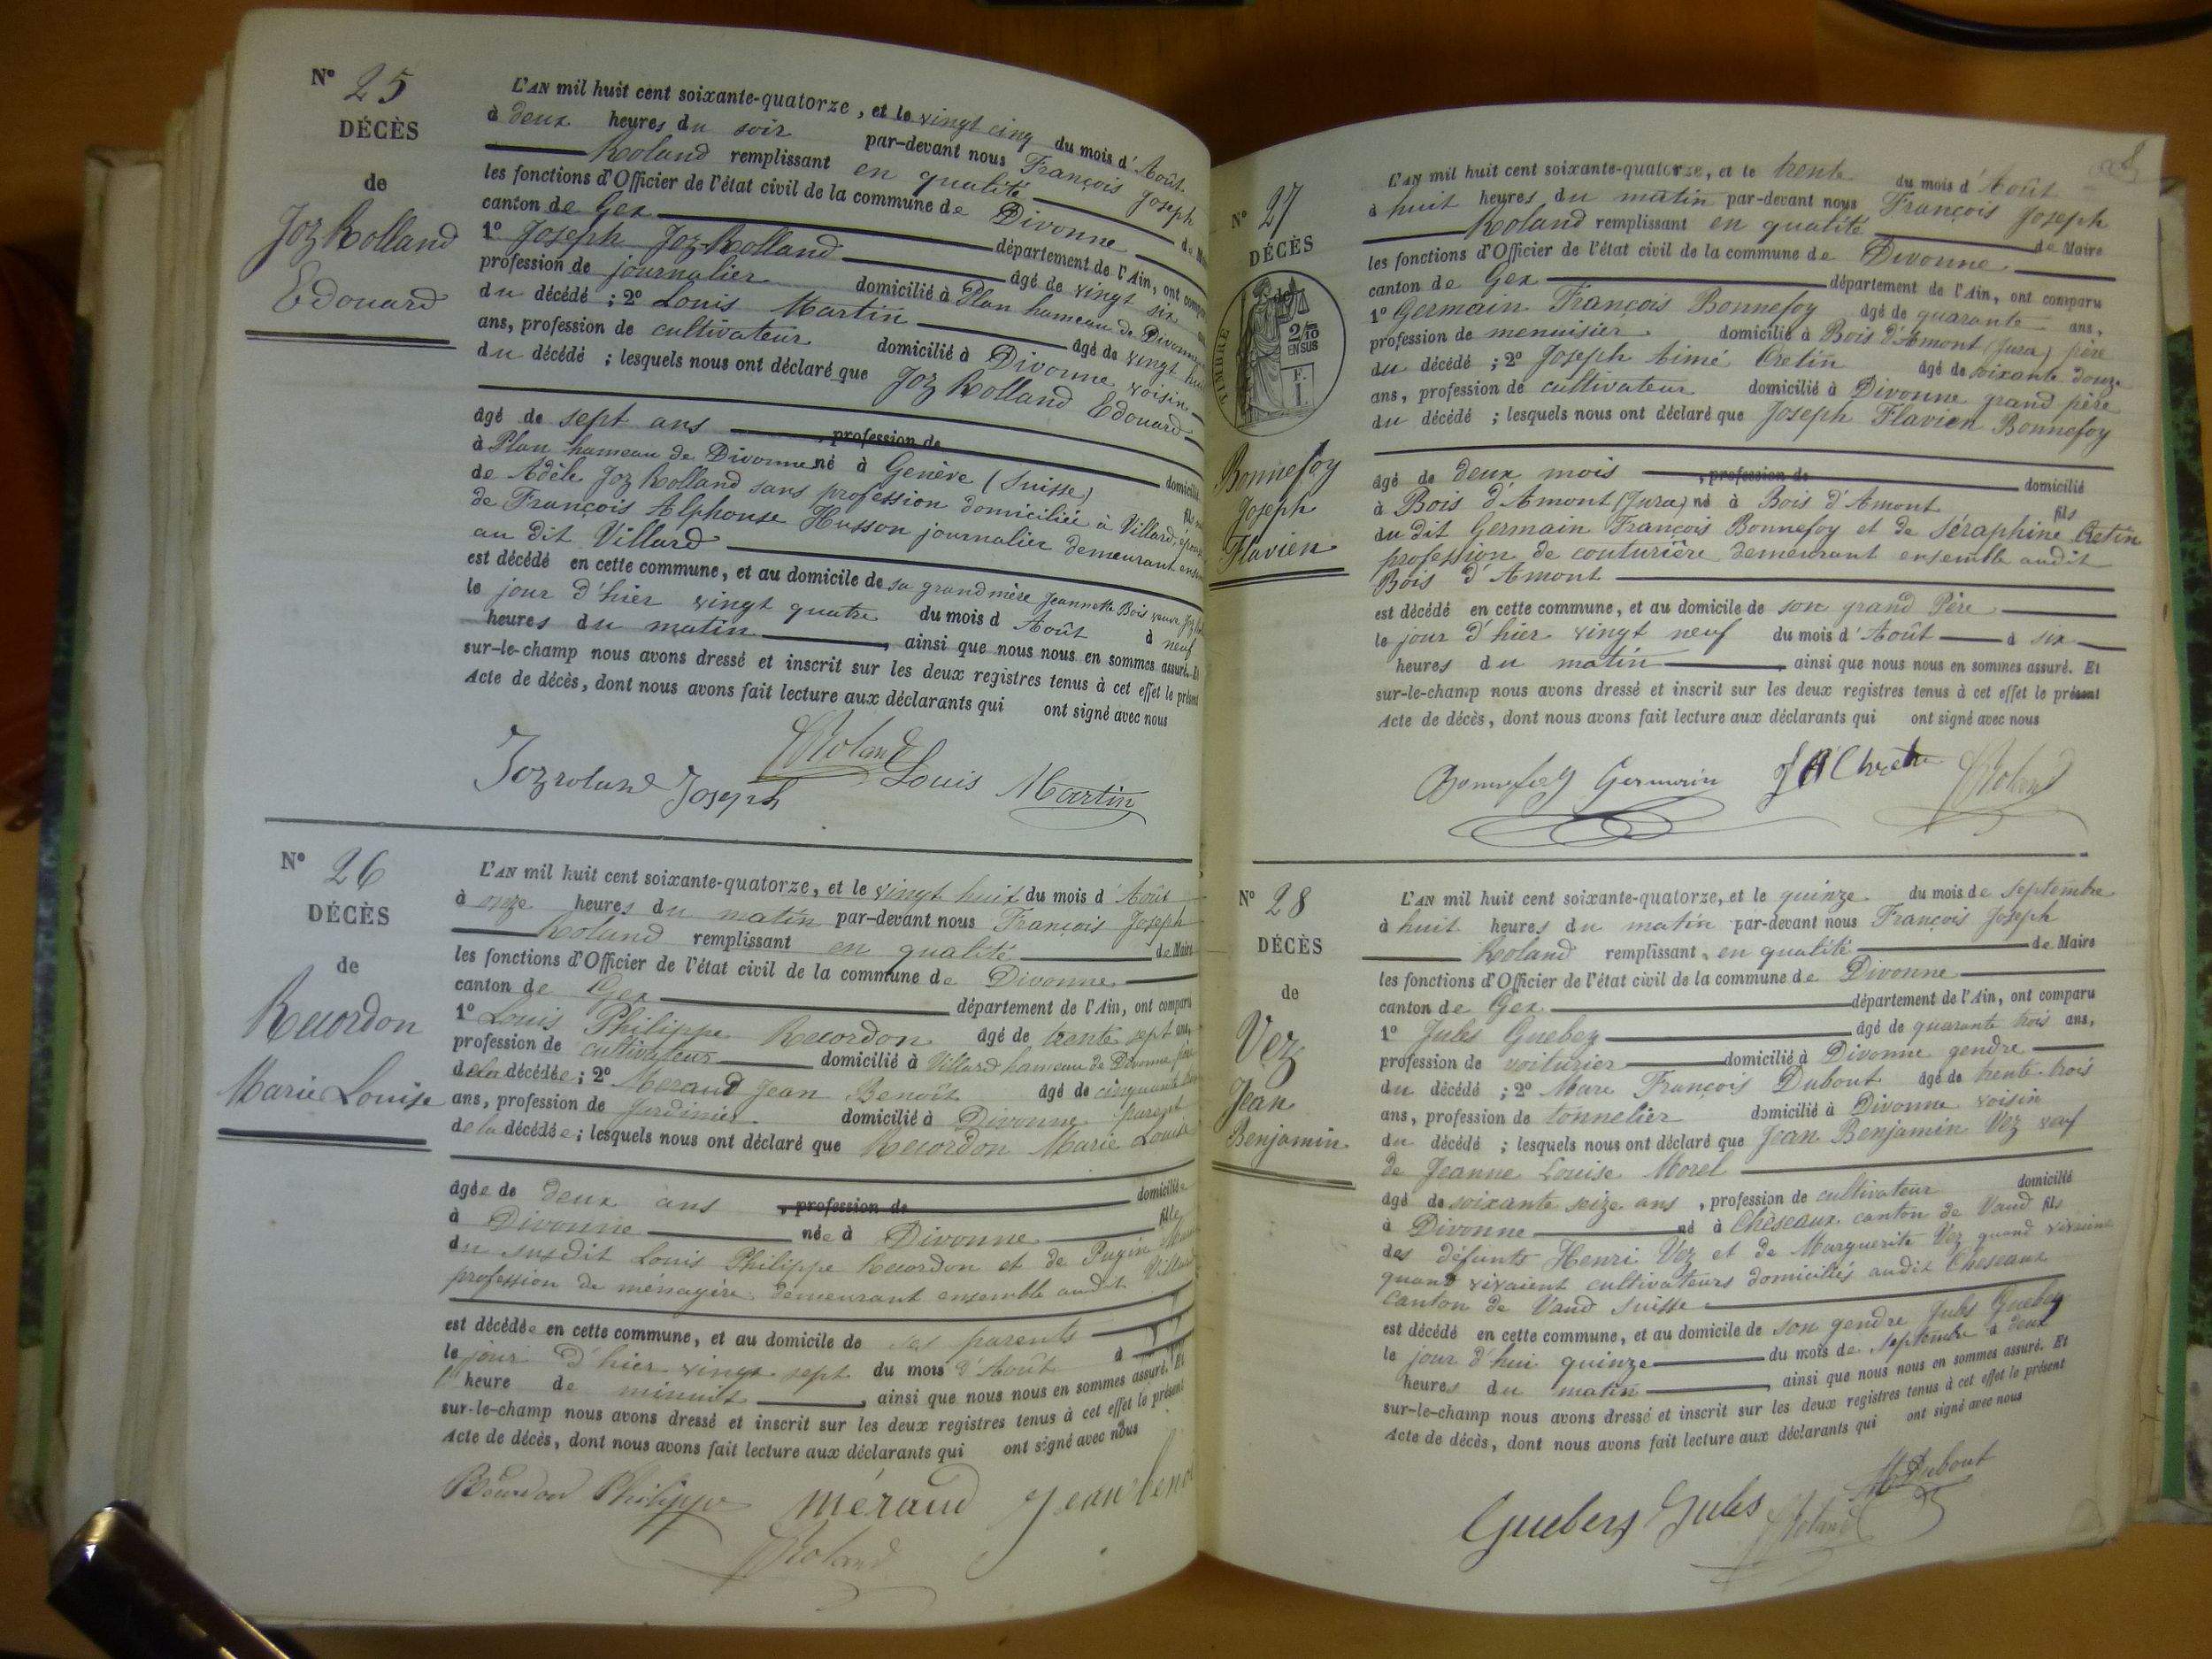 N° 25
DÉCÈS
de
Joz Rolland
Edouard
L'AN mil huit cent soixante-quatorze, et le vingt cinq du mois d'Août
à deux heures du soir par-devant nous François Joseph
Roland remplissant en qualité de Maire
les fonctions d'Officier de l'état civil de la commune de Divonne
canton de Gex département de l'Ain, ont comparu
1° Joseph Joz-Rolland âgé de vingt six ans
profession de journalier domicilié à Plan hameau de Divonne
du décédé ; 2° Louis Martin âgé de vingt huit
ans, profession de cultivateur domicilié à Divonne voisin
du décédé ; lesquels nous ont déclaré que Joz Rolland Edouard
âgé de sept ans , profession de domicilié
à Plan hameau de Divonne né à Genève (Suisse) fils
de Adèle Joz Rolland sans profession domiciliée à Villard, épouse
de François Alphonse Husson journalier demeurant
au dit Villard
est décédé en cette commune, et au domicile de sa grand mère Jeannette Bois veuve
le jour d'hier vingt quatre du mois d Août à neuf
heures du matin , ainsi que nous nous en sommes assuré. Et
sur-le-champ nous avons dressé et inscrit sur les deux registres tenus à cet effet le présent
Acte de décès, dont nous avons fait lecture aux déclarants qui ont signé avec nous
Jozroland Joseph Roland Louis Martin
N° 26
DÉCÈS
de
Recordon
Marie Louise
L'AN mil huit cent soixante-quatorze, et le vingt huit du mois d'Août
à onze heures du matin par-devant nous François Joseph
Roland remplissant en qualité de Maire
les fonctions d'Officier de l'état civil de la commune de Divonne
canton de Gex département de l'Ain, ont comparu
1° Louis Philippe Recordon âgé de trente sept ans,
profession de cultivateur domicilié à Villard hameau de Divonne père
de la décédée ; 2° Meraud Jean Benoît âgé de cinquante
ans, profession de Jardinier domicilié à Divonne parent
de la décédée ; lesquels nous ont déclaré que Recordon Marie Louise
âgée de deux ans , profession de domiciliée
à Divonne née à Divonne fille
du susdit Louis Philippe Recordon et de Pugin
profession de ménagère demeurant ensemble audit Villard
est décédée en cette commune, et au domicile de ses parents
le jour d'hier vingt sept du mois d'Août à
heure de minuit , ainsi que nous nous en sommes assuré. Et
sur-le-champ nous avons dressé et inscrit sur les deux registres tenus à cet effet le présent
Acte de décès, dont nous avons fait lecture aux déclarants qui ont signé avec nous
Recordon Philippe méraud Jean benoi
Roland
N° 27
DÉCÈS
de
TIMBRE
2/10
EN SUS
F.
1.
Bonnefoy
Joseph
Flavien
L'AN mil huit cent soixante-quatorze, et le trente du mois d'Août
à huit heures du matin par-devant nous François Joseph
Roland remplissant en qualité de Maire
les fonctions d'Officier de l'état civil de la commune de Divonne
canton de Gex département de l'Ain, ont comparu
1° Germain François Bonnefoy âgé de quarante ans,
profession de menuisier domicilié à Bois d'Amont (Jura) père
du décédé ; 2° Joseph Aimé Cretin âgé de soixante douze
ans, profession de cultivateur domicilié à Divonne grand père
du décédé ; lesquels nous ont déclaré que Joseph Flavien Bonnefoy
âgé de deux mois , profession de domicilié
à Bois d'Amont (Jura) né à Bois d'Amont fils
du dit Germain François Bonnefoy et de Séraphine Cretin
profession de couturière demeurant ensemble audit
Bois d'Amont
est décédé en cette commune, et au domicile de son grand Père
le jour d'hier vingt neuf du mois d'Août à six
heures du matin , ainsi que nous nous en sommes assuré. Et
sur-le-champ nous avons dressé et inscrit sur les deux registres tenus à cet effet le présent
Acte de décès, dont nous avons fait lecture aux déclarants qui ont signé avec nous
Bonnefoy Germain Roland
N° 28
DÉCÈS
de
Vez
Jean
Benjamin
L'AN mil huit cent soixante-quatorze, et le quinze du mois de septembre
à huit heures du matin par-devant nous François Joseph
Roland remplissant en qualité de Maire
les fonctions d'Officier de l'état civil de la commune de Divonne
canton de Gex département de l'Ain, ont comparu
1° Jules Guebey âgé de quarante trois ans,
profession de voiturier domicilié à Divonne gendre
du décédé ; 2° Marc François Dubout âgé de trente-trois
ans, profession de tonnelier domicilié à Divonne voisin
du décédé ; lesquels nous ont déclaré que Jean Benjamin Vez veuf
de Jeanne Louise Morel
âgé de soixante seize ans , profession de cultivateur domicilié
à Divonne né à Chéseaux canton de Vaud fils
des défunts Henri Vez et de Marguerite Vez quand vivaient
quand vivaient cultivateurs domiciliés audit Cheseaux
canton de Vaud Suisse
est décédé en cette commune, et au domicile de son gendre Jules Guebey
le jour d'hui quinze du mois de septembre à deux
heures du matin , ainsi que nous nous en sommes assuré. Et
sur-le-champ nous avons dressé et inscrit sur les deux registres tenus à cet effet le présent
Acte de décès, dont nous avons fait lecture aux déclarants qui ont signé avec nous
Guebey Jules Roland Dubout